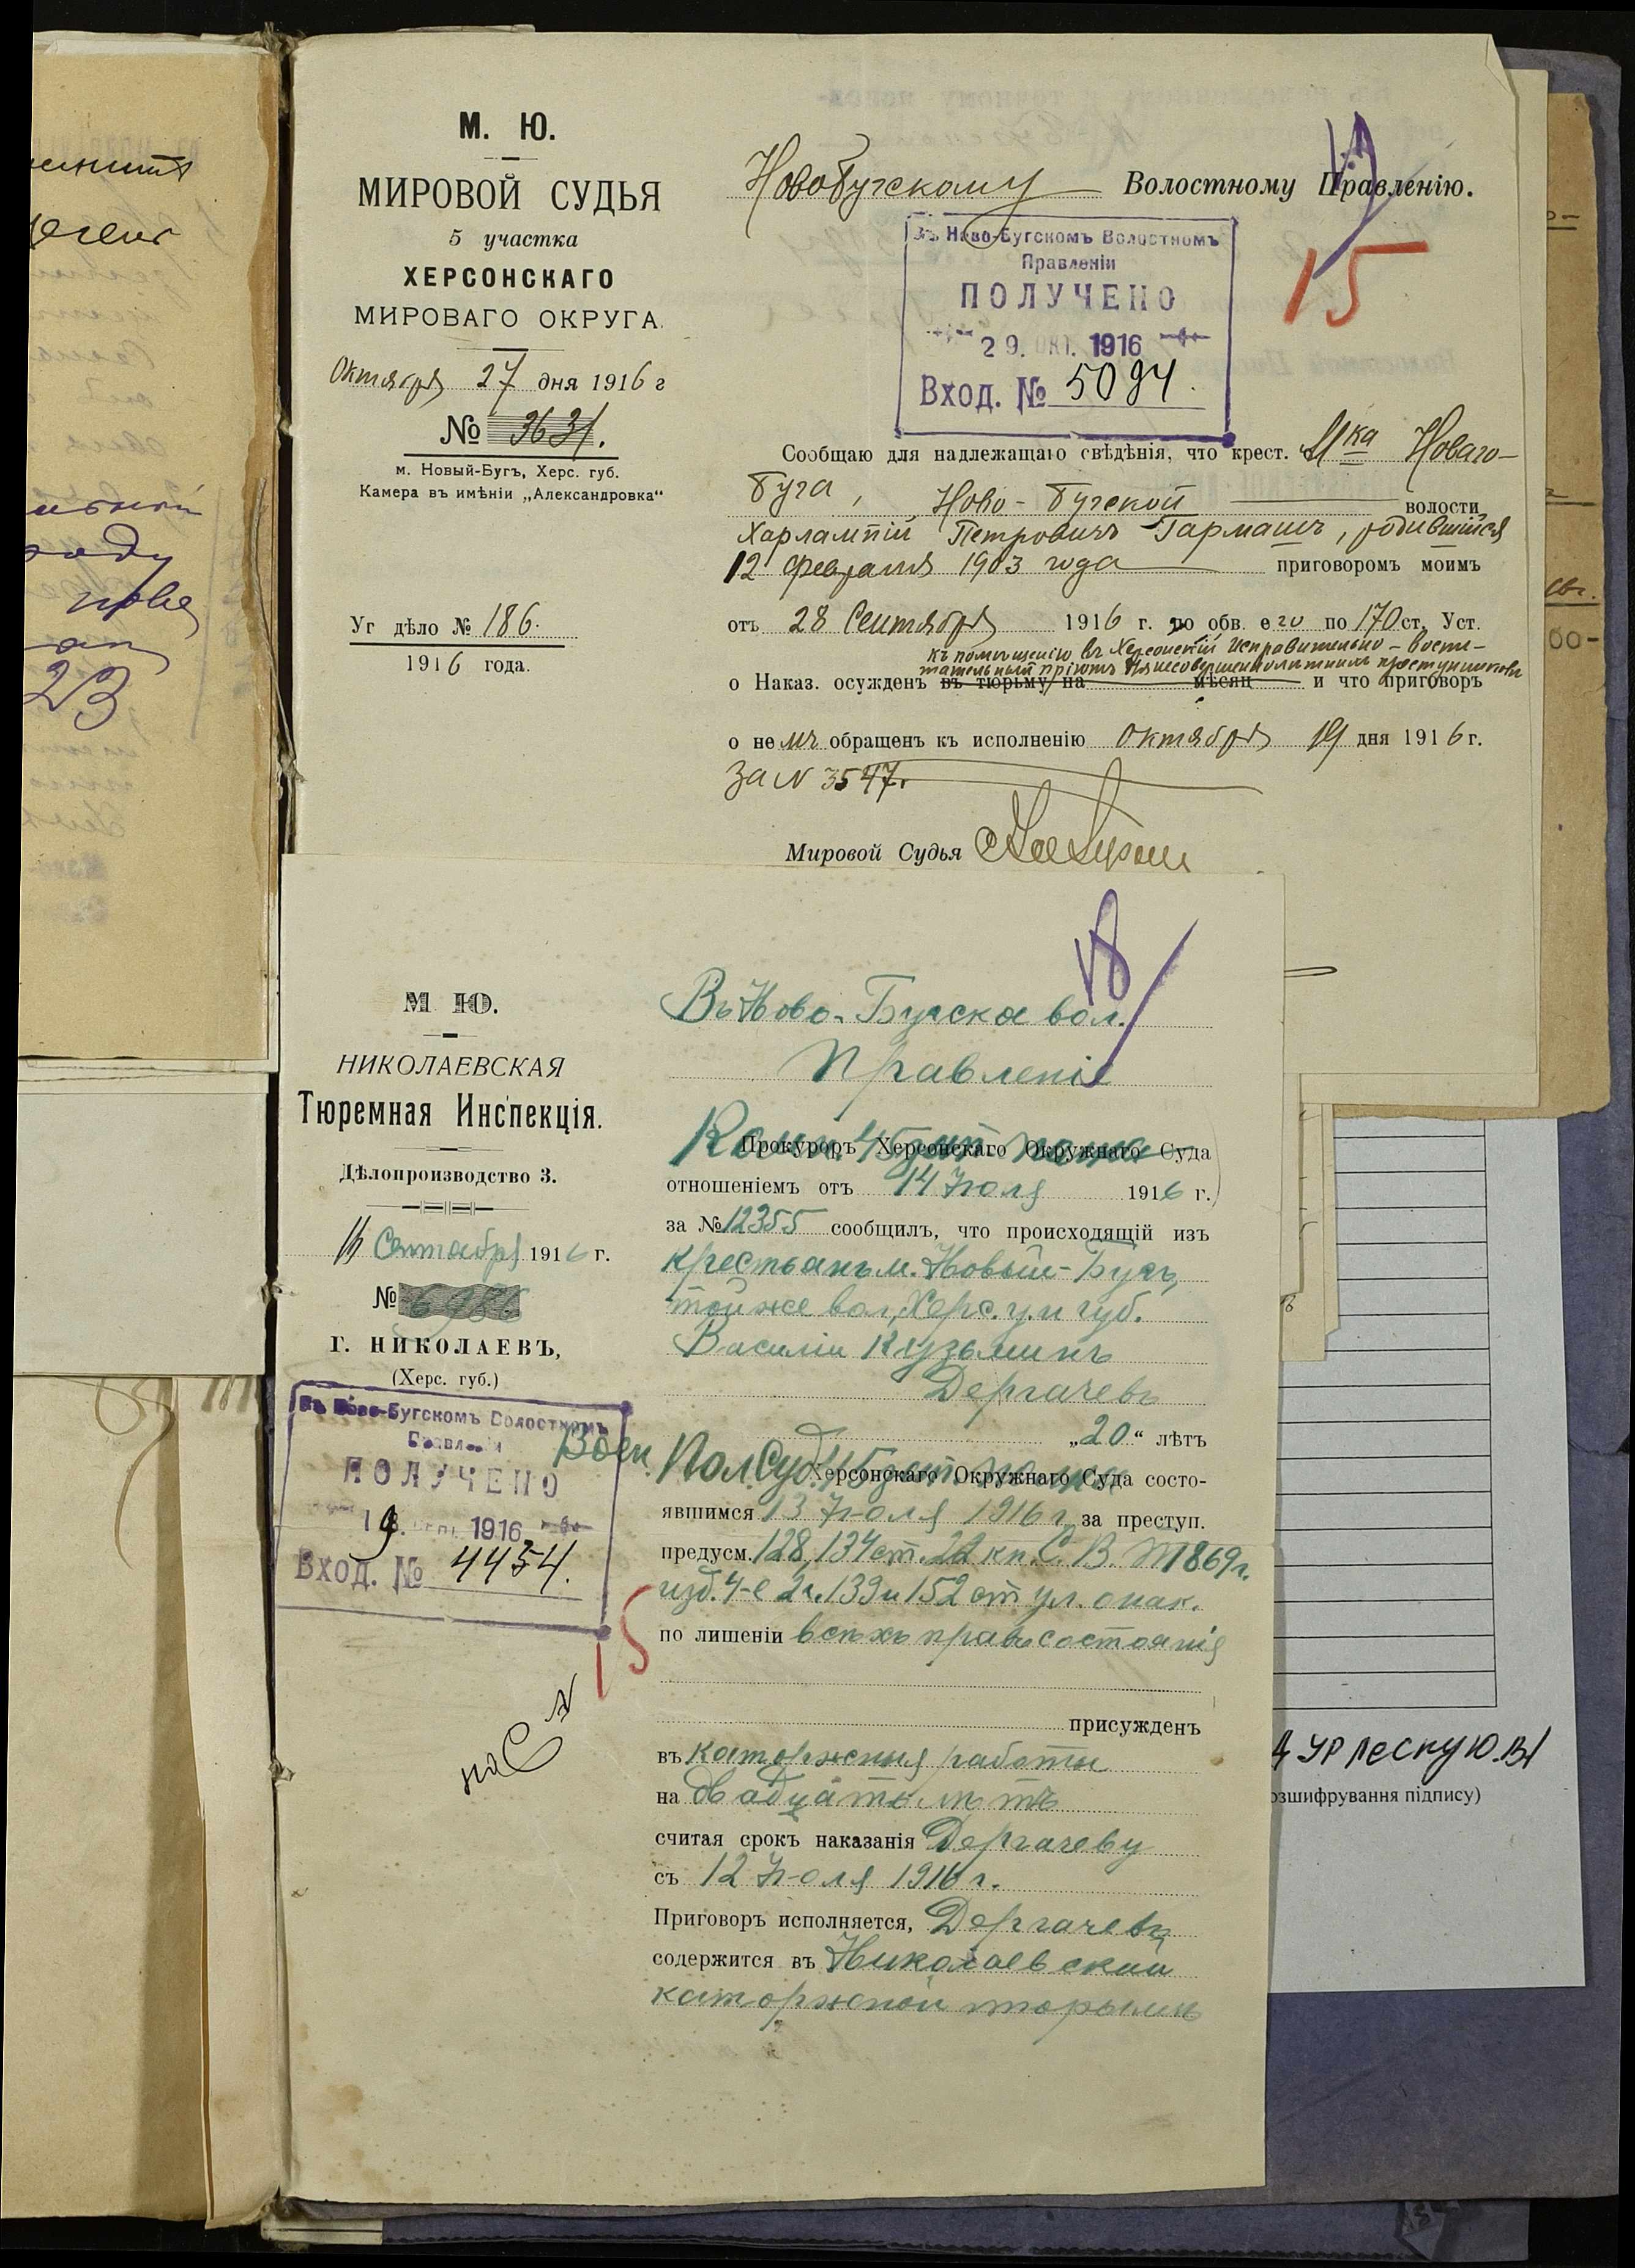 М. Ю.
МИРОВОЙ СУДЬЯ
5 участка
ХЕРСОНСКАГО
МИРОВАГО ОКРУГА.
Октября 27 дня 1916 г
№ 3631.
м. Новый-Бугъ, Херс. губ.
Камера въ имѣніи „Александровка“
Уг дѣло № 186.
1916 года.
Новобугскому Волостному Правленію.
15
Въ Ново-Бугскомъ Волостномъ
Правленіи
ПОЛУЧЕНО
29. ОКТ. 1916
Вход. № 5094.
Сообщаю для надлежащаго свѣдѣнія, что крест. М-ка Новаго-
Буга, Ново-Бугской волости
Харлампій Петровичъ Гармашъ, родившійся
12 февраля 1903 года приговоромъ моимъ
отъ 28 Сентября 1916 г. по обв. его по 170 ст. Уст.
къ помѣщенію въ Херсонскій Исправительно-воспи-
тательный пріютъ для несовершеннолѣтнихъ преступниковъ
о Наказ. осужденъ въ тюрьму на мѣсяц и что приговоръ
о немъ обращенъ къ исполненію Октября 19 дня 1916 г.
за № 3547.
Мировой Судья
М Ю.
НИКОЛАЕВСКАЯ
Тюремная Инспекція.
Дѣлопроизводство 3.
16 Сентября 1916 г.
№ 6986
Г. НИКОЛАЕВЪ,
(Херс. губ.)
Въ Ново-Бугскомъ Волостномъ
Правленіи
ПОЛУЧЕНО
19. СЕН. 1916
Вход. № 4454.
15
18
Въ Ново-Бугское вол.
Правленіе
Ком. 45 пѣх. полка
Прокуроръ Херсонскаго Окружнаго Суда
отношеніемъ отъ 14 Іюля 1916 г.
за № 12355 сообщилъ, что происходящій изъ
крестьянъ м. Новый-Бугъ,
той же вол, Херс. у. и губ.
Василій Кузьминъ
Дергачевъ
„20“ лѣтъ
Воен. Пол. Суд. 45 пѣх. полка
Херсонскаго Окружнаго Суда состо-
явшимся 13 Іюля 1916 г. за преступ.
предусм. 128, 134 ст. 22 кн. С. В. П 1869 г.
изд. 4-е 2 ч. 139 и 152 ст ул. о нак.
по лишеніи всѣхъ правъ состоянія
присужденъ
въ каторжныя работы
на двадцать лѣтъ
считая срокъ наказанія Дергачеву
съ 12 Іюля 1916 г.
Приговоръ исполняется, Дергачевъ
содержится въ Николаевской
каторжной тюрьмѣ
23
озшифрування підпису)